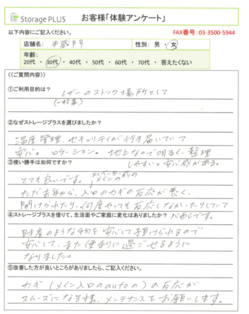 Storage PLUS お客様「体験アンケート」
以下内容にご記入ください。 FAX番号:03-3500-5944
店舗名: 性別: 男・女
年齢:
20代・30代・40代・50代・60代・70代・答えたくない
((ご質問内容))
①ご利用目的は？
レゴのストック場所として
②なぜストレージプラスを選びましたか？
温度管理、セキュリティが行き届いていて
安心。ロケーション。地上なので明るく、整理
しやすい。安心感がある。
③使い勝手は如何ですか？
とても良いです。
ただ当初から、入口のカギの反応が悪く、
開けられたり、何度やっても反応しなかったりしていて
④ストレージプラスを借りて、生活面やご家族に変化はありましたか？
財産のような物を安心して預けられるので
安心して、また便利に過ごせるように
なりました。
⑤改善した方が良いところがありましたら、ご記入ください。
カギ(メイン入口のautoの)の反応が
スムーズになる様、メンテナンスをお願いします。